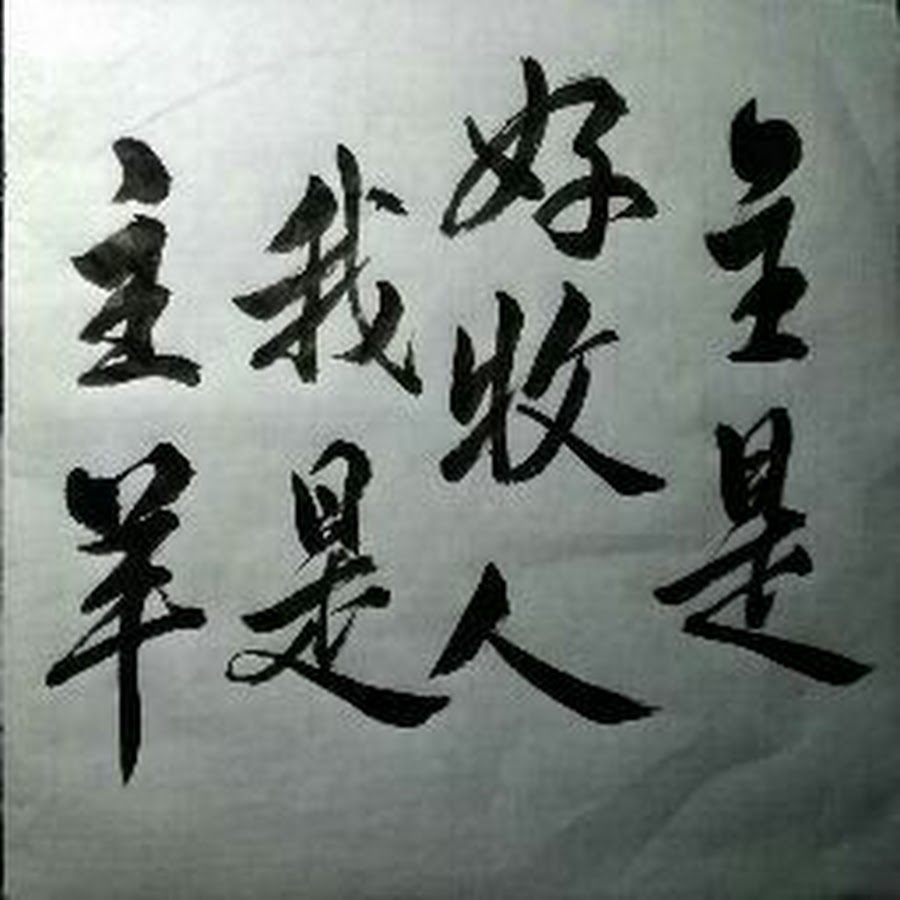 主是
好牧人
我是
主羊